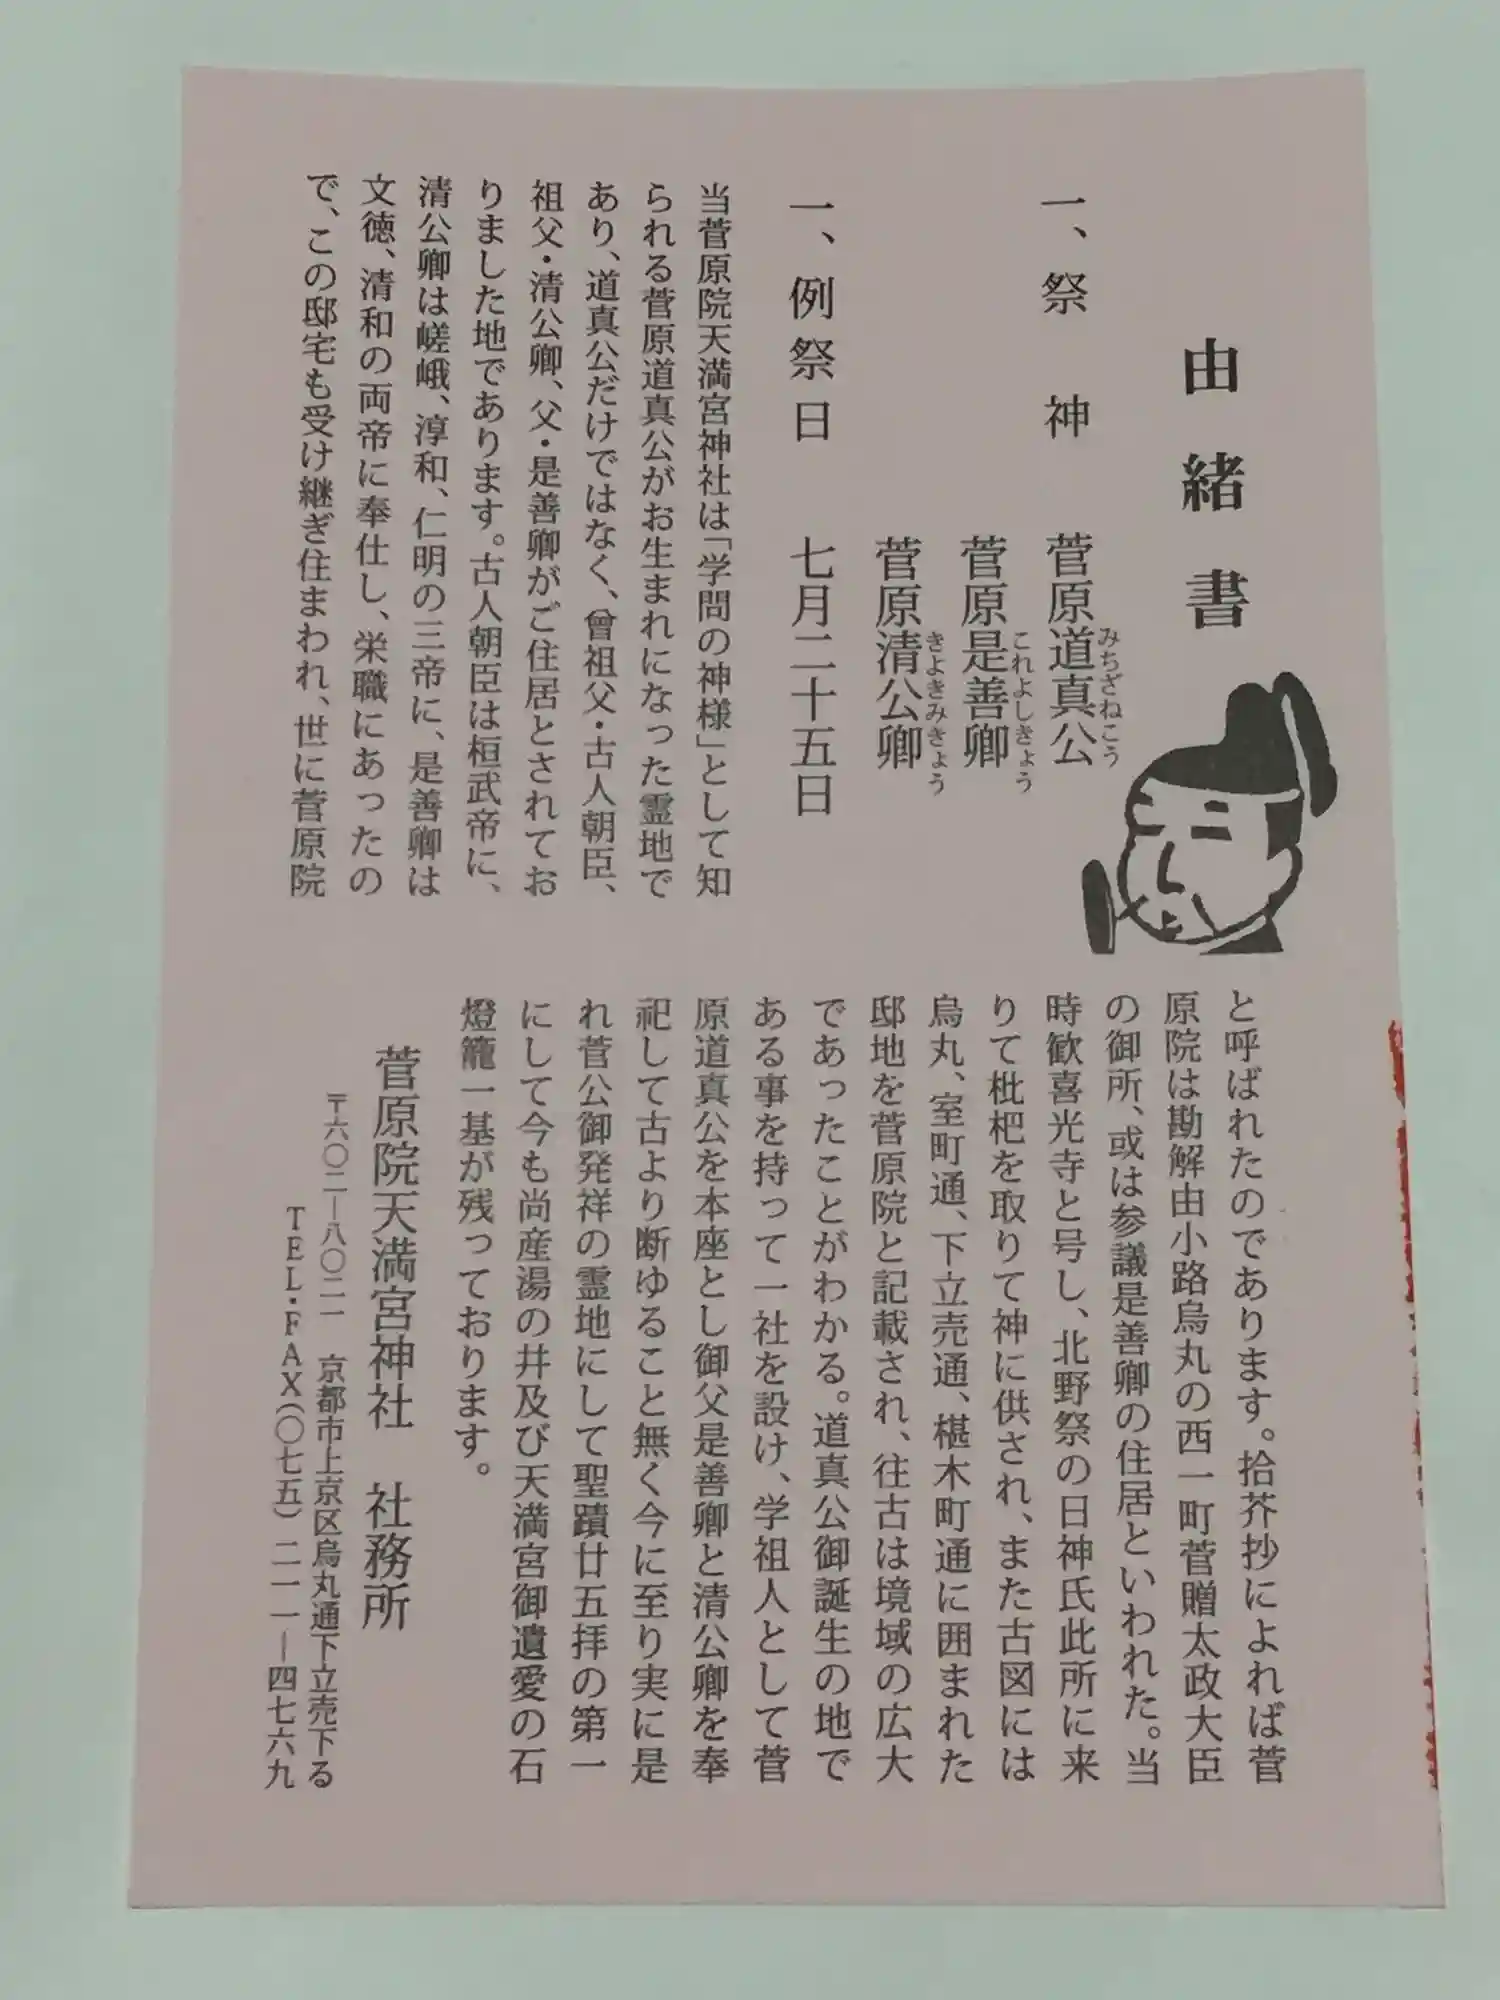 由緒書
一、祭神 菅原道真公
みちざねこう
菅原是善卿
これよしきょう
菅原清公卿
きよきみきょう
一、例祭日 七月二十五日
当菅原院天満宮神社は「学問の神様」として知
られる菅原道真公がお生まれになった霊地で
あり、道真公だけではなく、曾祖父・古人朝臣、
祖父・清公卿、父・是善卿がご住居とされてお
りました地であります。古人朝臣は桓武帝に、
清公卿は嵯峨、淳和、仁明の三帝に、是善卿は
文徳、清和の両帝に奉仕し、栄職にあったの
で、この邸宅も受け継ぎ住まわれ、世に菅原院
と呼ばれたのであります。拾芥抄によれば菅
原院は勘解由小路烏丸の西一町菅贈太政大臣
の御所、或は参議是善卿の住居といわれた。当
時歓喜光寺と号し、北野祭の日神氏此所に来
りて枇杷を取りて神に供され、また古図には
烏丸、室町通、下立売通、椹木町通に囲まれた
邸地を菅原院と記載され、往古は境域の広大
であったことがわかる。道真公御誕生の地で
ある事を持って一社を設け、学祖人として菅
原道真公を本座とし御父是善卿と清公卿を奉
祀して古より断ゆること無く今に至り実に是
れ菅公御発祥の霊地にして聖蹟廿五拝の第一
にして今も尚産湯の井及び天満宮御遺愛の石
燈籠一基が残っております。
菅原院天満宮神社 社務所
〒六〇二―八〇二一 京都市上京区烏丸通下立売下る
TEL・FAX(〇七五)二一一―四七六九